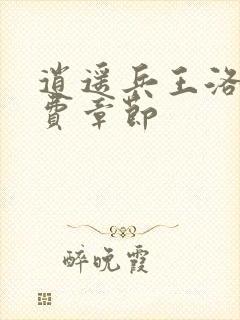 逍遥兵王洛
費章節
醉晚霞